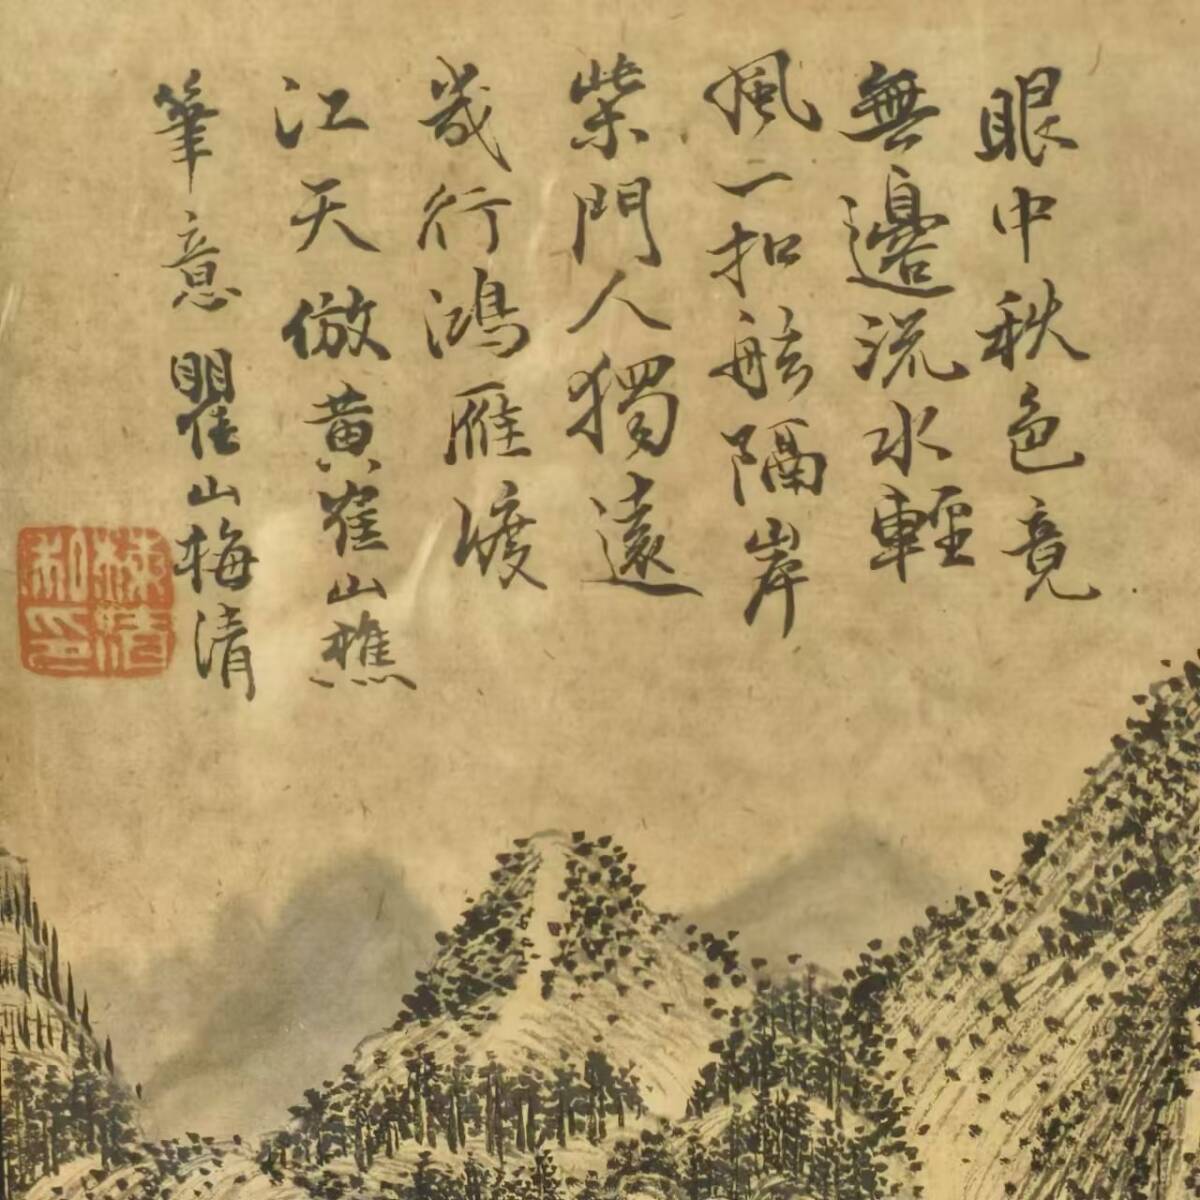 眼中秋色竟
無邊流水輕
風一扣舷隔岸
柴門人獨遠
幾行鴻雁渡
江天倣黃崔山樵
筆意瞿山梅清